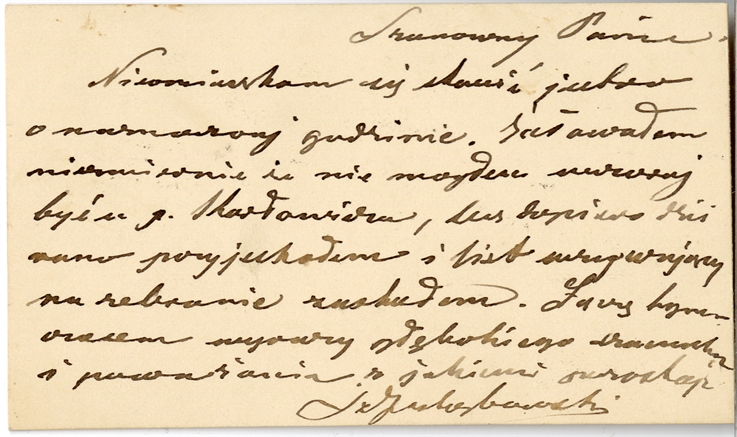 Szanowny Panie.
Nieomieszkam się stawić jutro
o naznaczonej godzinie. Żałowałem
niezmiernie że nie mogłem wczoraj
być u p. Karłowicza, lecz dopiero dziś
rano przyjechałem i list wzywający
na zebranie zastałem. Łączę tymczasem
wyrazy głębokiego szacunku
i poważania z jakiemi pozostaję